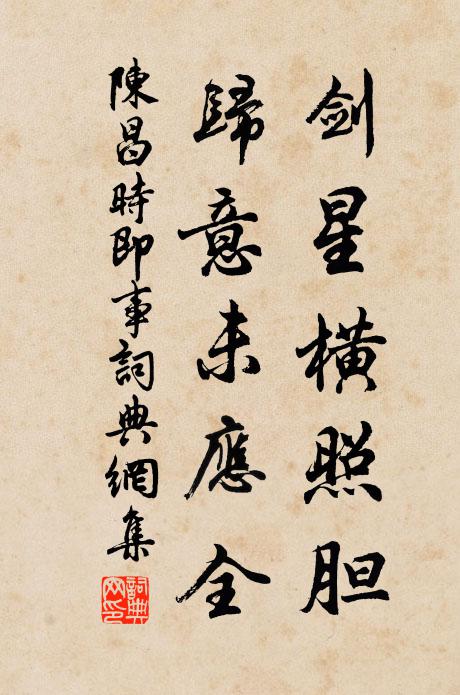 剑星橫照胆
歸意未應全
陳昌時即事詞典網集
詞典網印